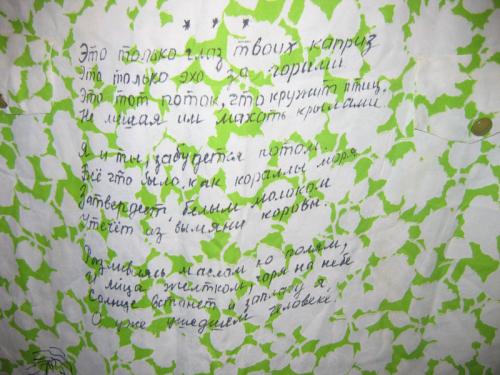 * * *
Это только глаз твоих каприз
Это только эхо за горами
Это тот поток, что кружит птиц,
Не мешая им махать крылами.
Я и ты, забудется потом.
Всё что было, как кораллы моря
Затвердеет белым молоком
Утечёт из вымяни коровы.
Разливаясь маслом по полям,
И яйца желтком, горя на небе
Солнце встанет, и заплачу я,
О уже ушедшем человеке.